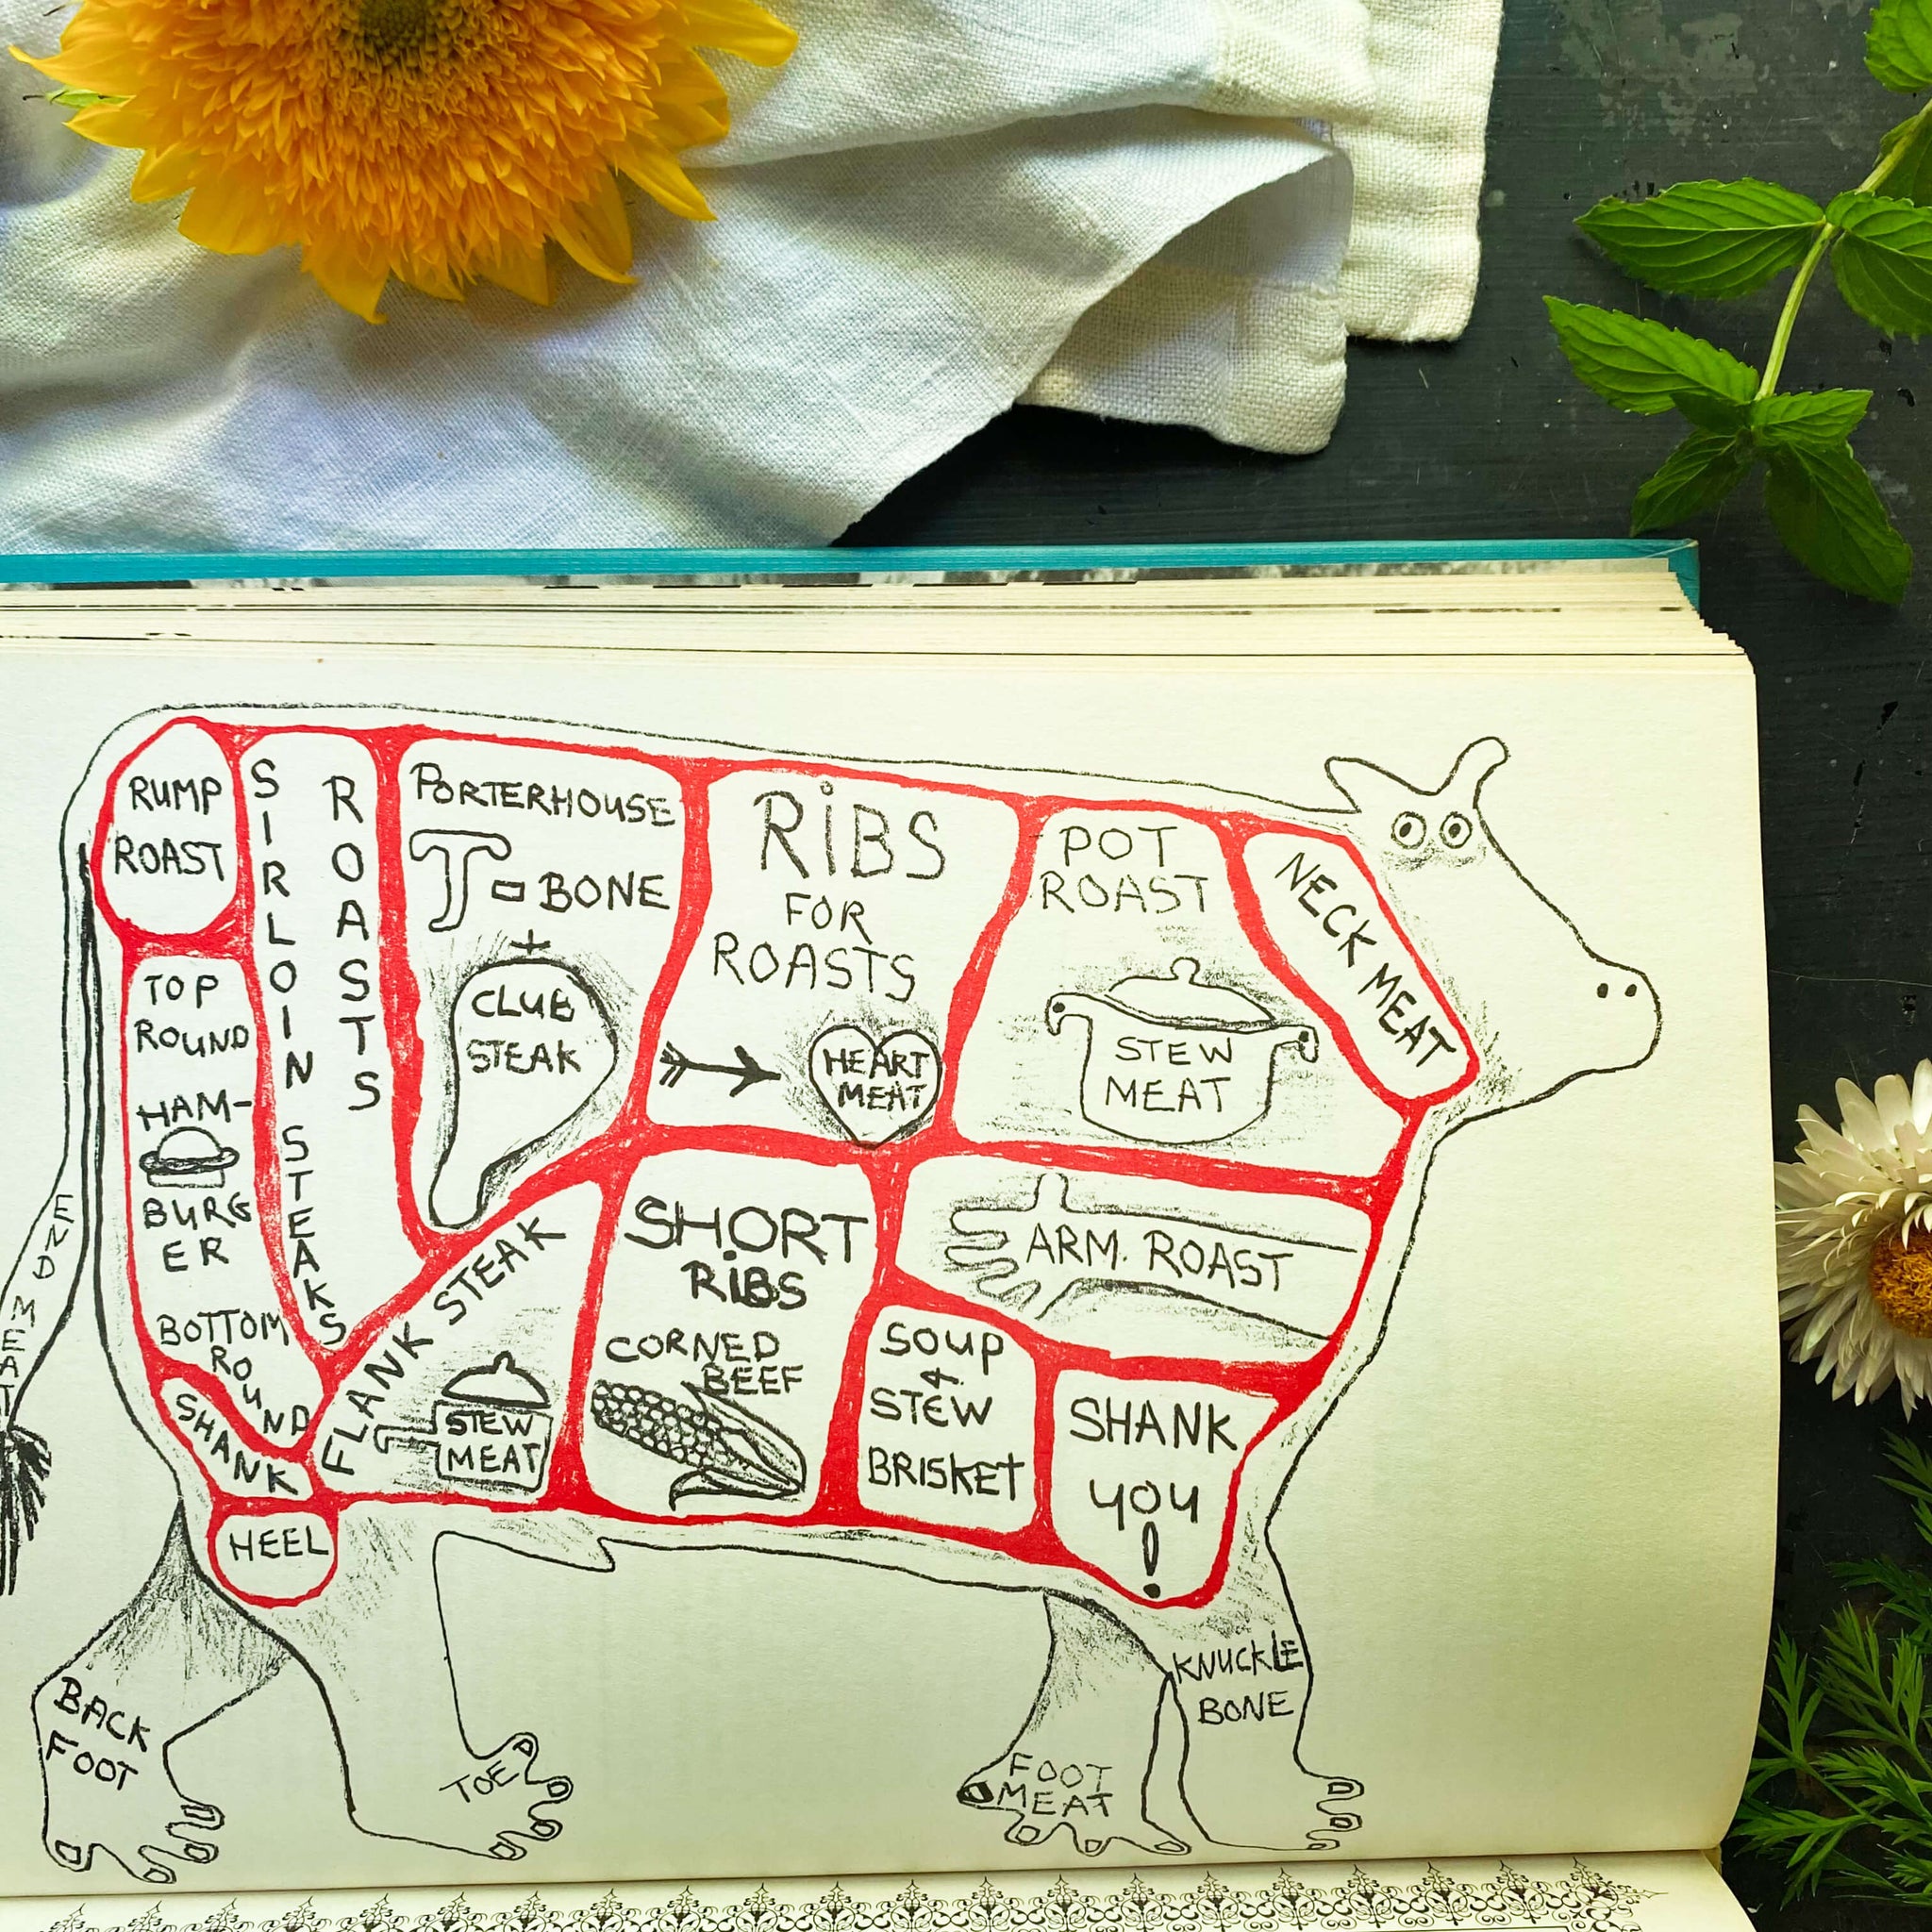 RUMP
ROAST
SIRLOIN STEAKS
ROASTS
PORTERHOUSE
T-BONE
+
CLUB
STEAK
RIBS
FOR
ROASTS
HEART
MEAT
POT
ROAST
STEW
MEAT
NECK MEAT
TOP
ROUND
HAM-
BURG
ER
BOTTOM
ROUND
SHANK
HEEL
FLANK STEAK
STEW
MEAT
SHORT
RIBS
CORNED
BEEF
ARM. ROAST
SOUP
&
STEW
BRISKET
SHANK
YOU
!
END MEAT
BACK
FOOT
TOE
FOOT
MEAT
KNUCKLE
BONE